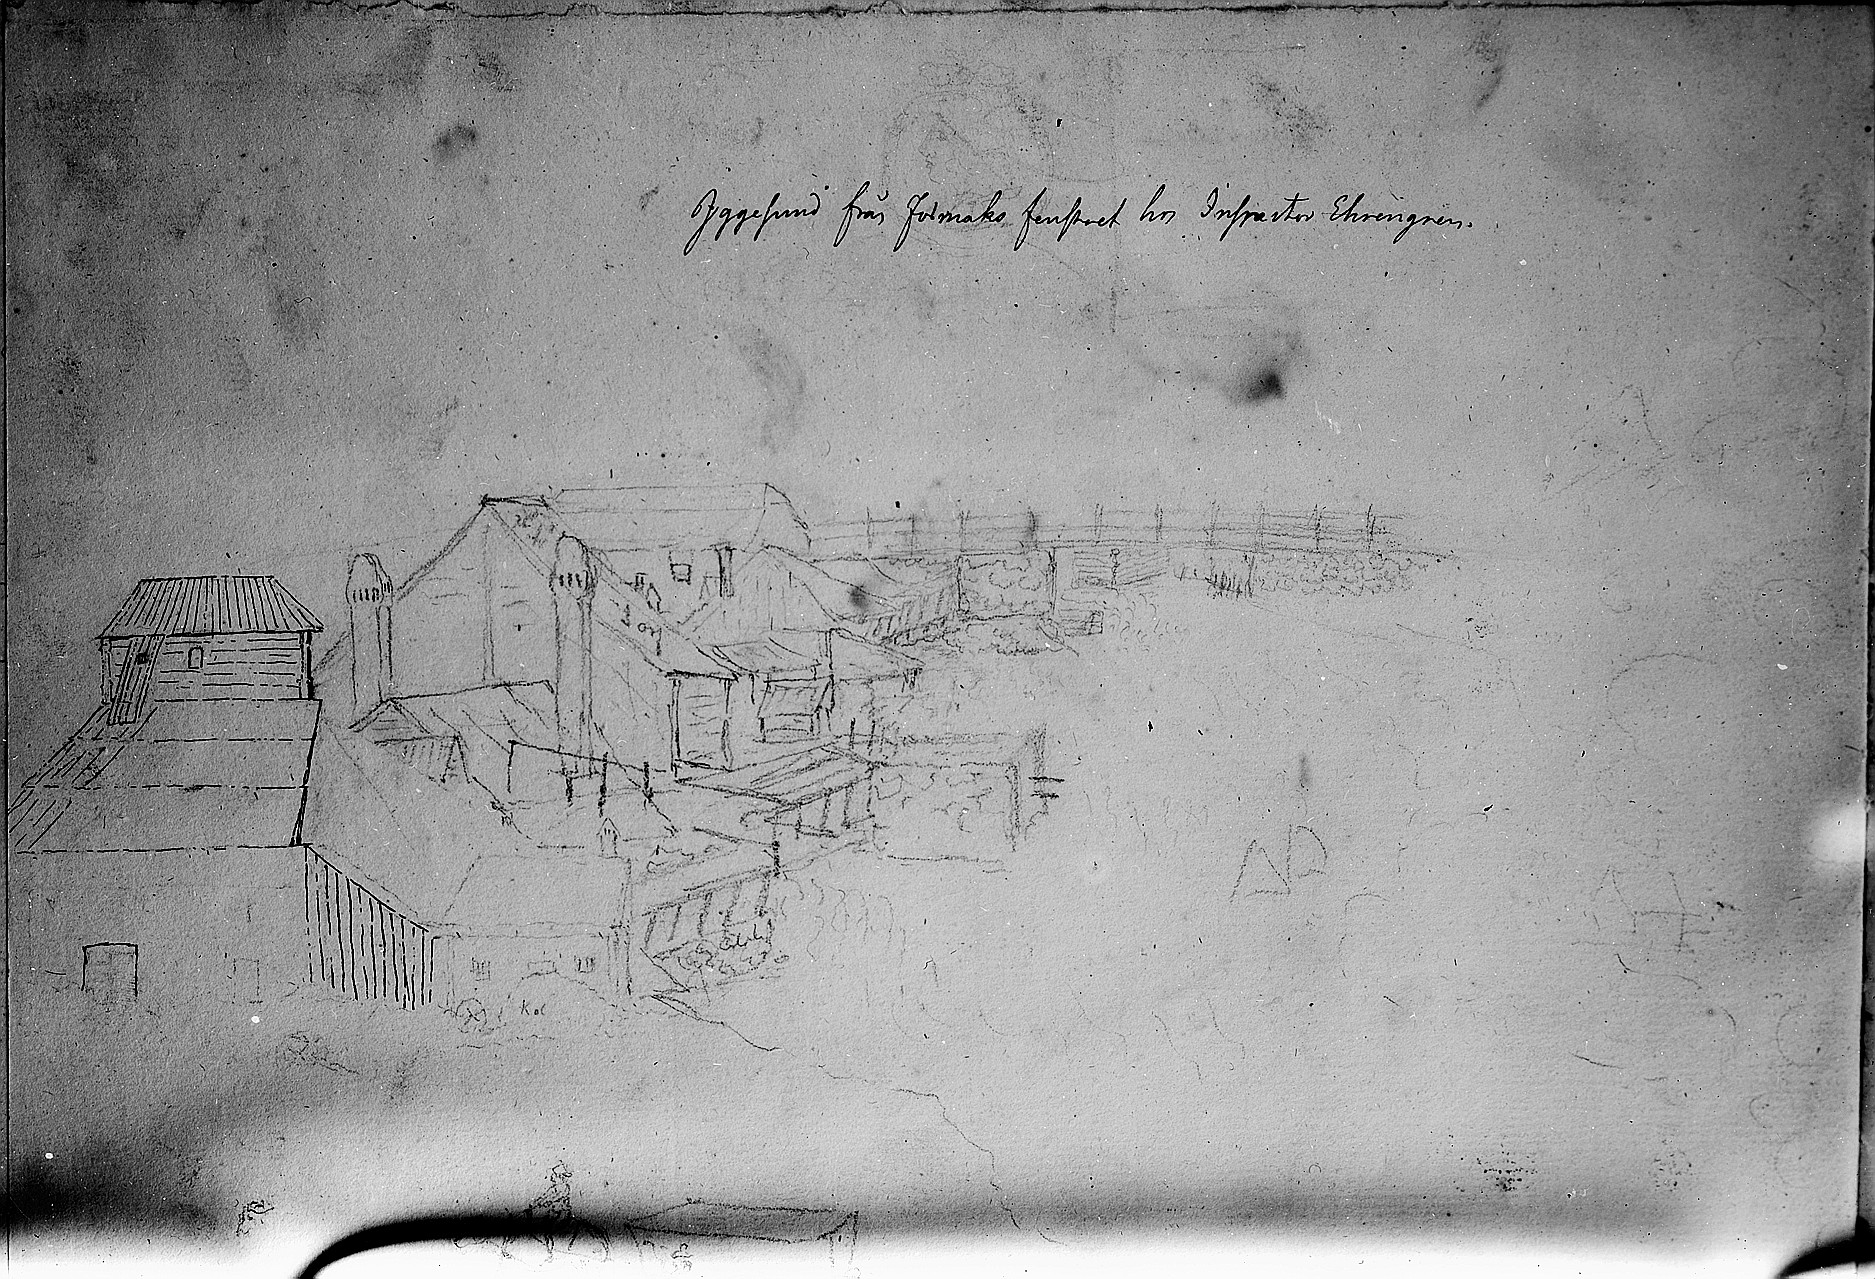 Iggesund från förmaks fenstret hos Inspector Ehrengren.
Kol